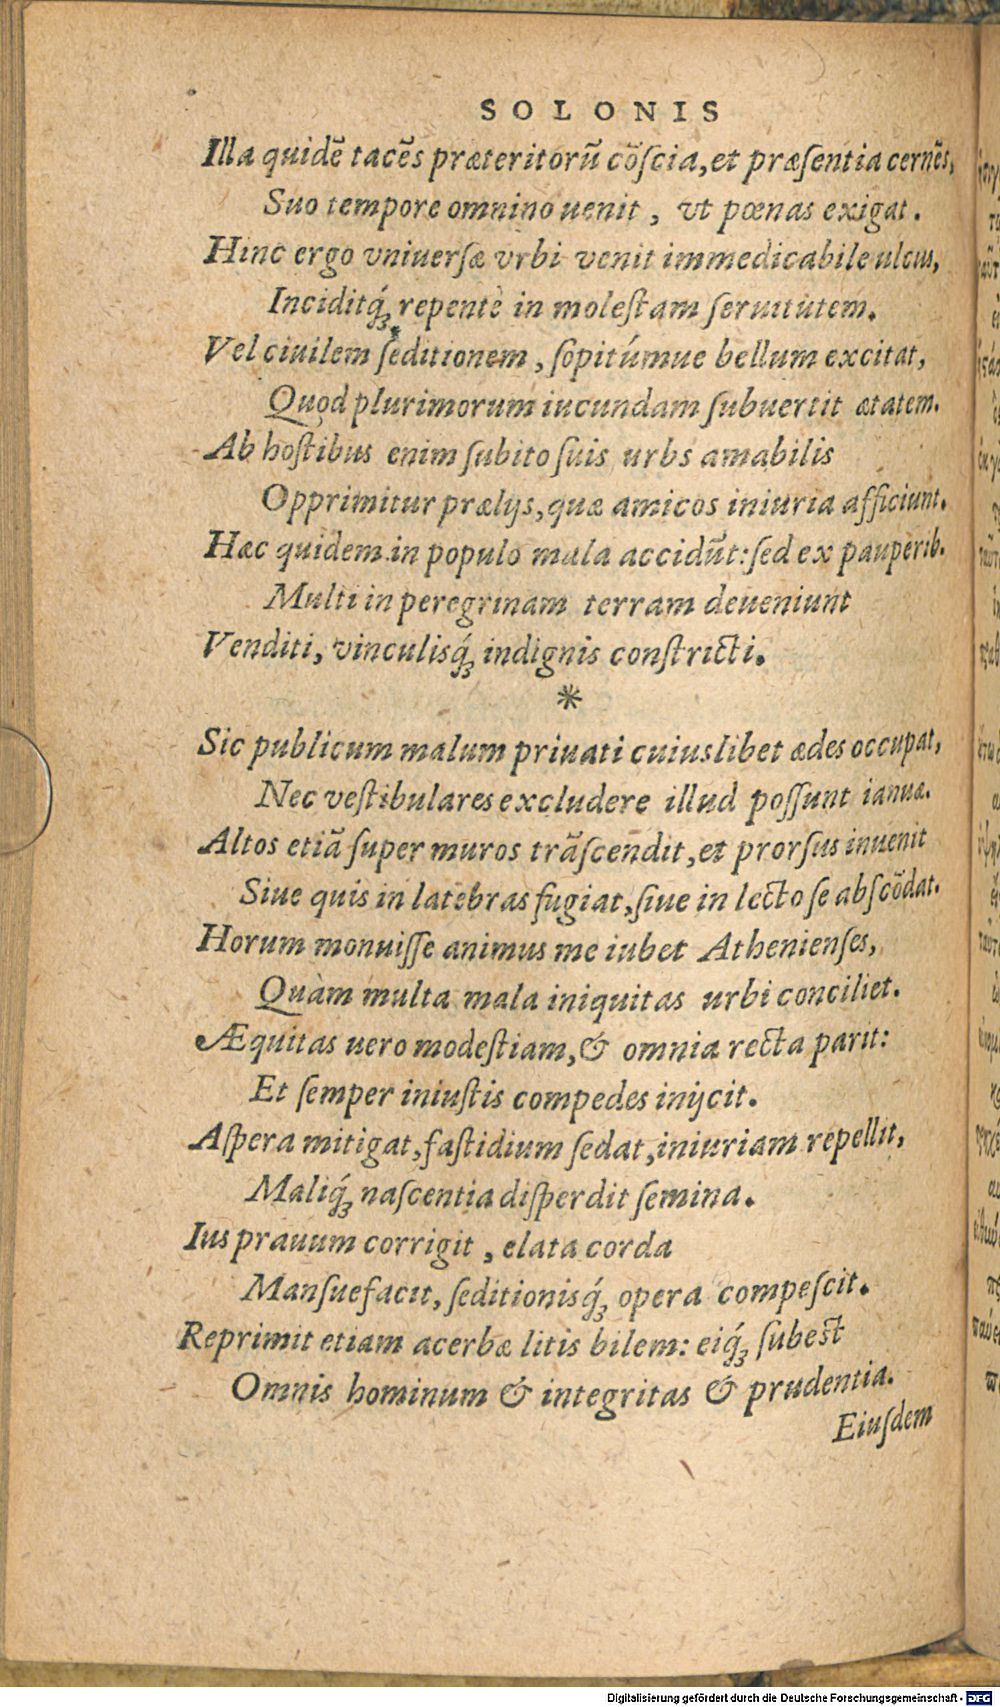 SOLONIS
Illa quidẽ tacẽs præteritorũ cõſcia, et præſentia cernẽs,
Suo tempore omnino uenit, vt pœnas exigat.
Hinc ergo vniuerſæ vrbi venit immedicabile ulcus,
Inciditq́ꝫ repentè in moleſtam ſeruitutem.
Vel ciuilem ſeditionem, ſopitúmue bellum excitat,
Quod plurimorum iucundam ſubuertit ætatem.
Ab hoſtibus enim ſubito ſuis urbs amabilis
Opprimitur prælijs, quæ amicos iniuria afficiunt.
Hæc quidem in populo mala accidũt: ſed ex pauperib.
Multi in peregrinam terram deueniunt
Venditi, vinculisq́ꝫ indignis conſtricti.
*
Sic publicum malum priuati cuiuslibet ædes occupat,
Nec veſtibulares excludere illud poſſunt ianuæ.
Altos etiã ſuper muros trãſcendit, et prorſus inuenit
Siue quis in latebras fugiat, ſiue in lecto ſe abſcõdat.
Horum monuiſſe animus me iubet Athenienſes,
Quàm multa mala iniquitas urbi conciliet.
Æquitas uero modeſtiam, & omnia recta parit:
Et ſemper iniuſtis compedes inijcit.
Aſpera mitigat, faſtidium ſedat, iniuriam repellit,
Maliq́ꝫ naſcentia diſperdit ſemina.
Ius prauum corrigit, elata corda
Manſuefacit, ſeditionisq́ꝫ opera compeſcit.
Reprimit etiam acerbæ litis bilem: eiq́ꝫ ſubest
Omnis hominum & integritas & prudentia.
Eiuſdem
Digitalisierung gefördert durch die Deutsche Forschungsgemeinschaft - DFG